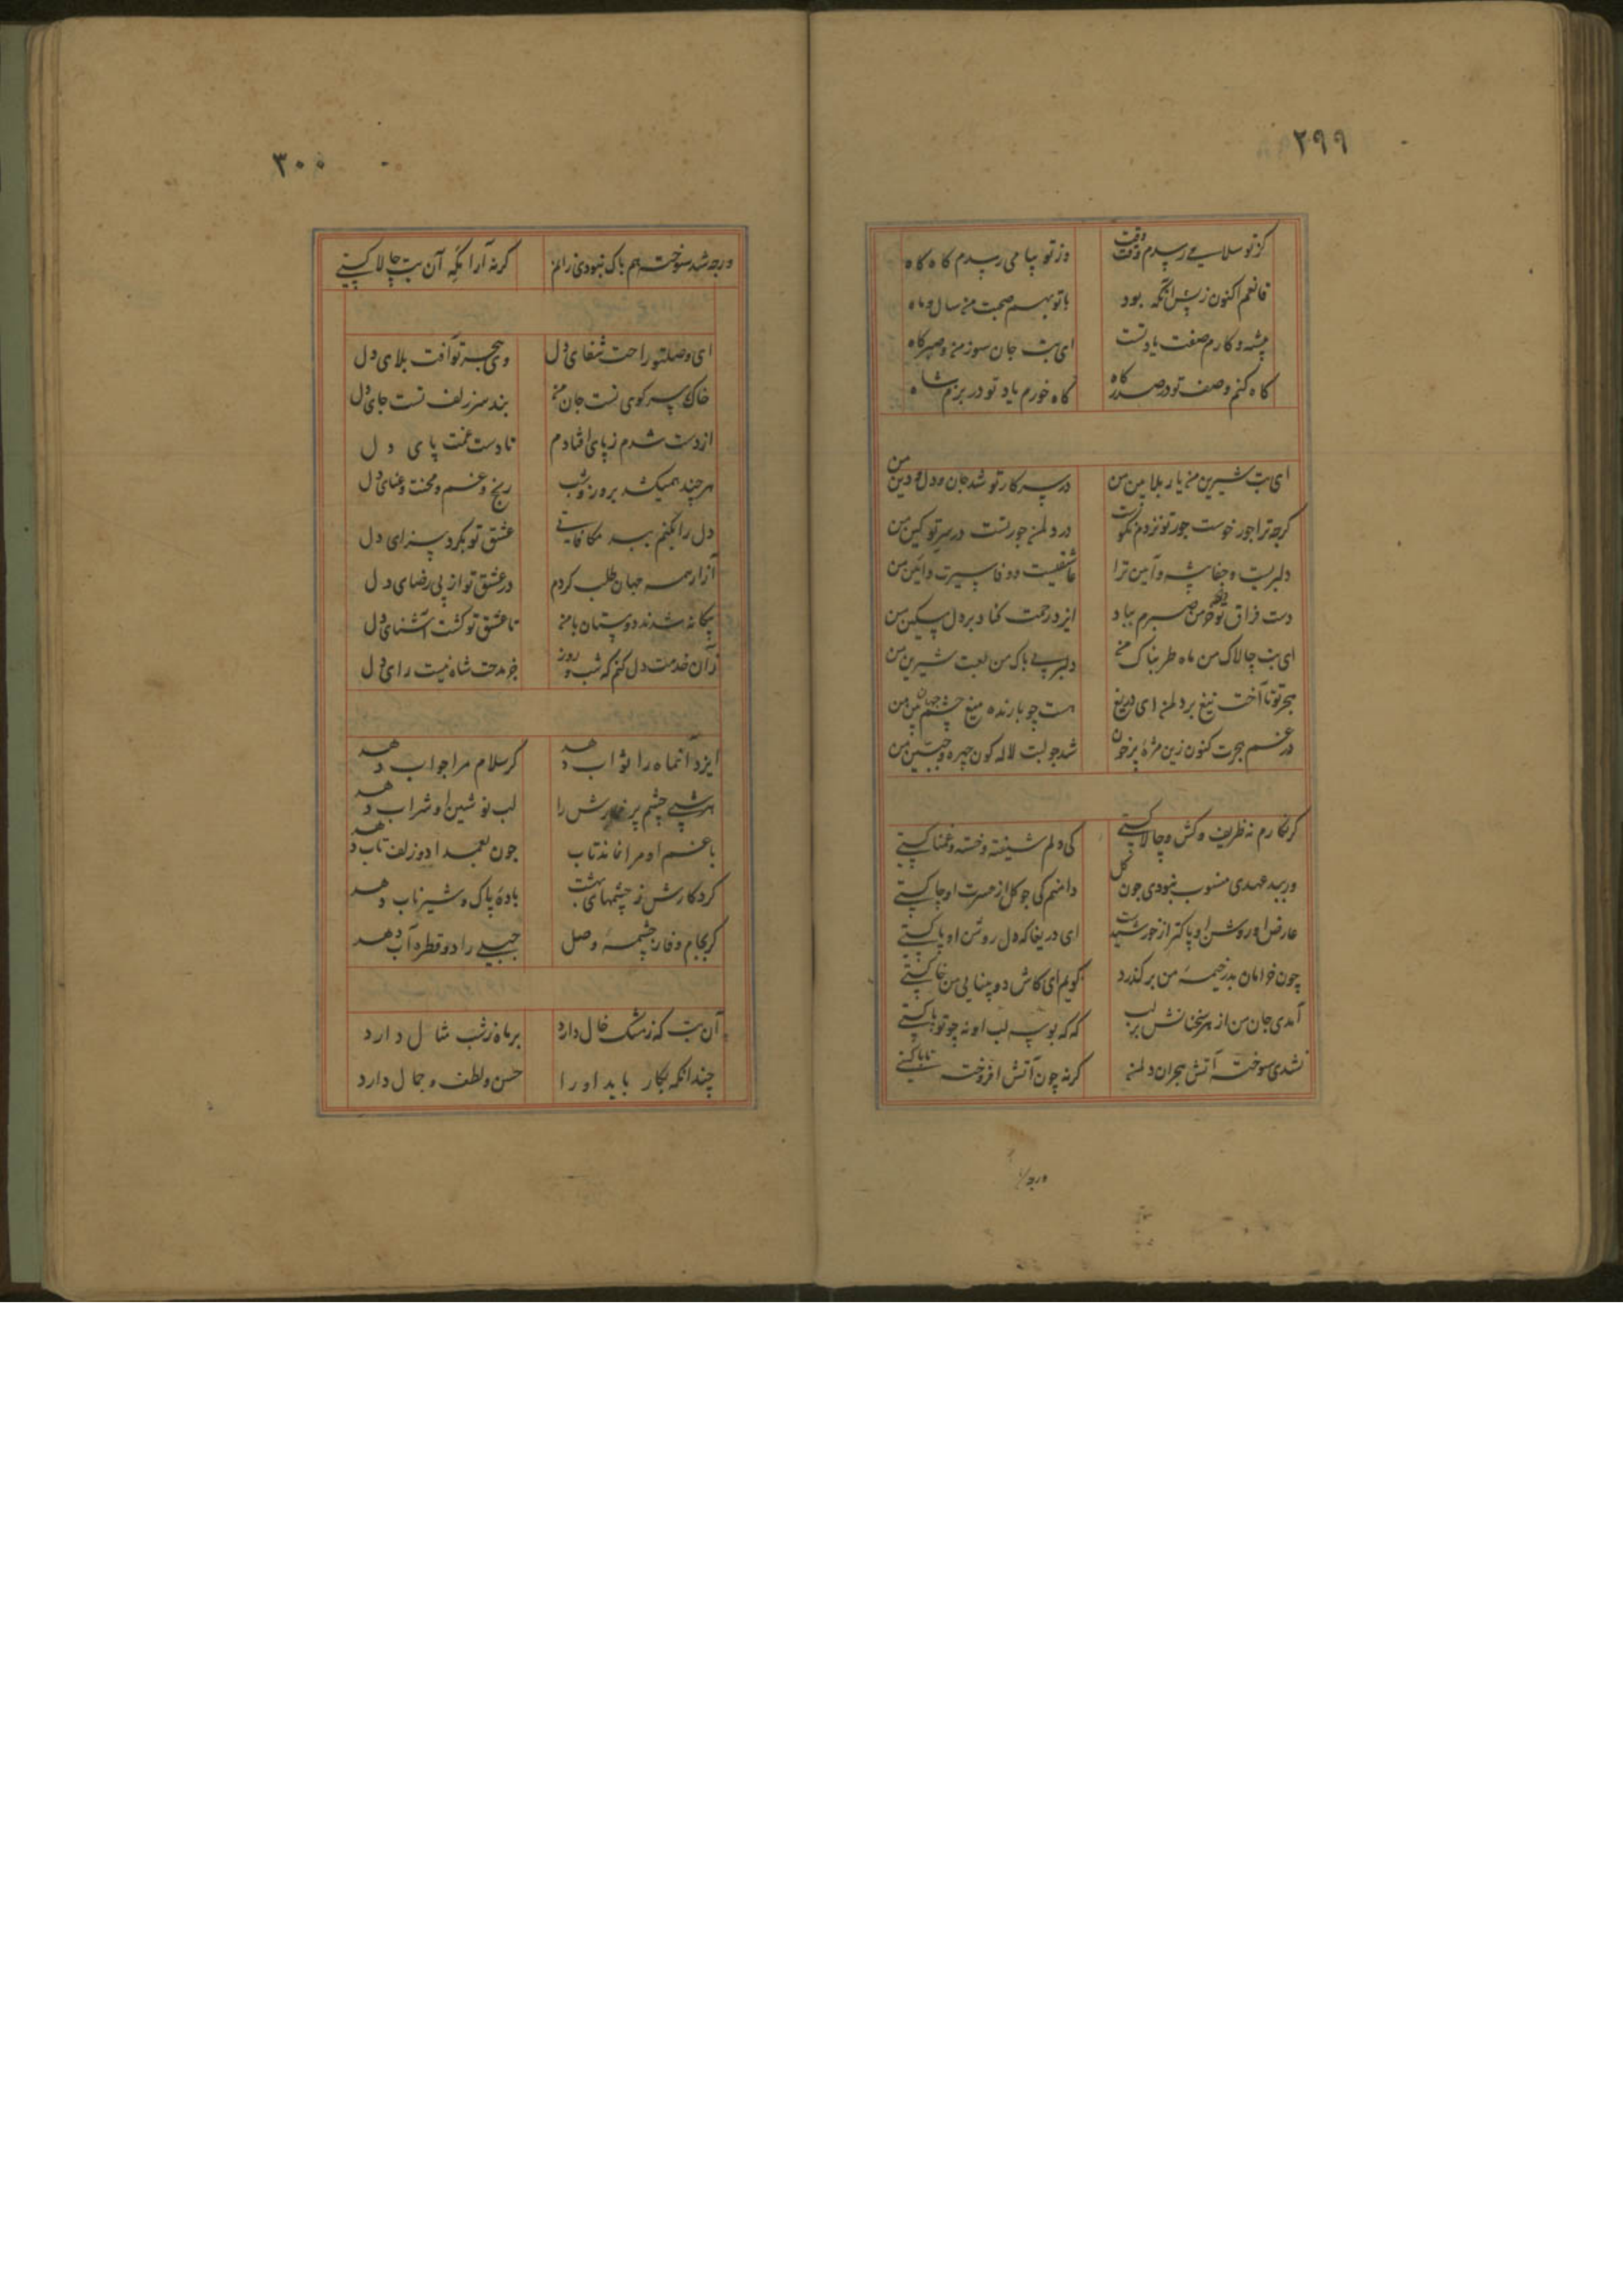 ۲۹۹
کز تو سلامی رسدم وقت وقت وز تو پیامی رسدم کاه کاه
قانعم اکنون ز پس آنکه بود با تو بهم صحبت من سال و ماه
پیشه و کارم صفت یاد تست ای بت جان سوز من و صبر کاه
کاه کنم وصف تو در صدر کاه کاه خورم یاد تو در بزم شاه
ای بت شیرین من یار بلا بین من در سر کار تو شد جان و دل و دین من
کرچه ترا جور خوست جور تو نزدم نکوست در دل من جور تست در سر تو کین من
دلبریست و جفا پیشه و آیین ترا عاشقیست و وفا سیرت و آئین من
دست فراق تو خرمن صبرم بباد ایزد رحمت کناد بر دل مسکین من
ای بت چالاک من ماه طربناک من دلبر بی باک من لعبت شیرین من
هجر تو تا آخت تیغ بر دل من ای دریغ هست چو بارنده میغ چشم جهان بین من
در غم هجرت کنون زین مژهٔ پر خون شد چو لبت لاله کون چهره و جبین من
کر نکارم نه ظریف و کش و چالاکستی کی دلم شیفته و خسته و غمناکستی
ور ببد عهدی منسوب نبودی چون کل دامنم کی چو کل از حسرت او چاکستی
عارض او روشن و پاکتر از خورشید است ای دریغا که دل روشن او پاکستی
چون خرامان بدر خیمهٔ من بر کذرد کویم ای کاش دو بینایی من خاکستی
آمدی جان من از هر سخنانش بر لب که که بوسه لب او نه چو تریاکستی
نشدی سوخته ز آتش هجران دل من کرنه چون آتش افروخته تاباکستی
ورچه
۳۰۰
ورچه شد سوخته هم باک نبودی زان کرنه آرامکه آن بت چالاکستی
ای وصل تو راحت شفای دل وی هجر تو آفت بلای دل
خاک سر کوی تست جان من بند سر زلف تست جای دل
از دست شدم ز پای افتادم تا دست غمت پای دل
هر چند همیکشد بروز و شب رنج و غم و محنت و عنای دل
دل را نکنم ببد مکافاتی عشق تو بکرد سزای دل
آزار همه جهان طلب کردم در عشق تو از پی رضای دل
بیکانه شدند دوستان با من تا عشق تو کشت آشنای دل
زان خدمت دل کنم که شب و روز جز مدحت شاه نیست رای دل
ایزد آنماه را ثواب دهد کر سلام مرا جواب دهد
هر شبی چشم پر خمارش را لب نوشین او شراب دهد
با غم او مرا نماند تاب چون بعمدا دو زلف تاب دهد
کردکارش ز چشمهای بهشت بادهٔ پاک و شیر ناب دهد
کر بجام وفا ز چشمهٔ وصل جبلی را دو قطره آب دهد
آن بت که ز مشک خال دارد بر ماه ز شب مثال دارد
چندانکه بکار باید او را حسن و لطف و جمال دارد